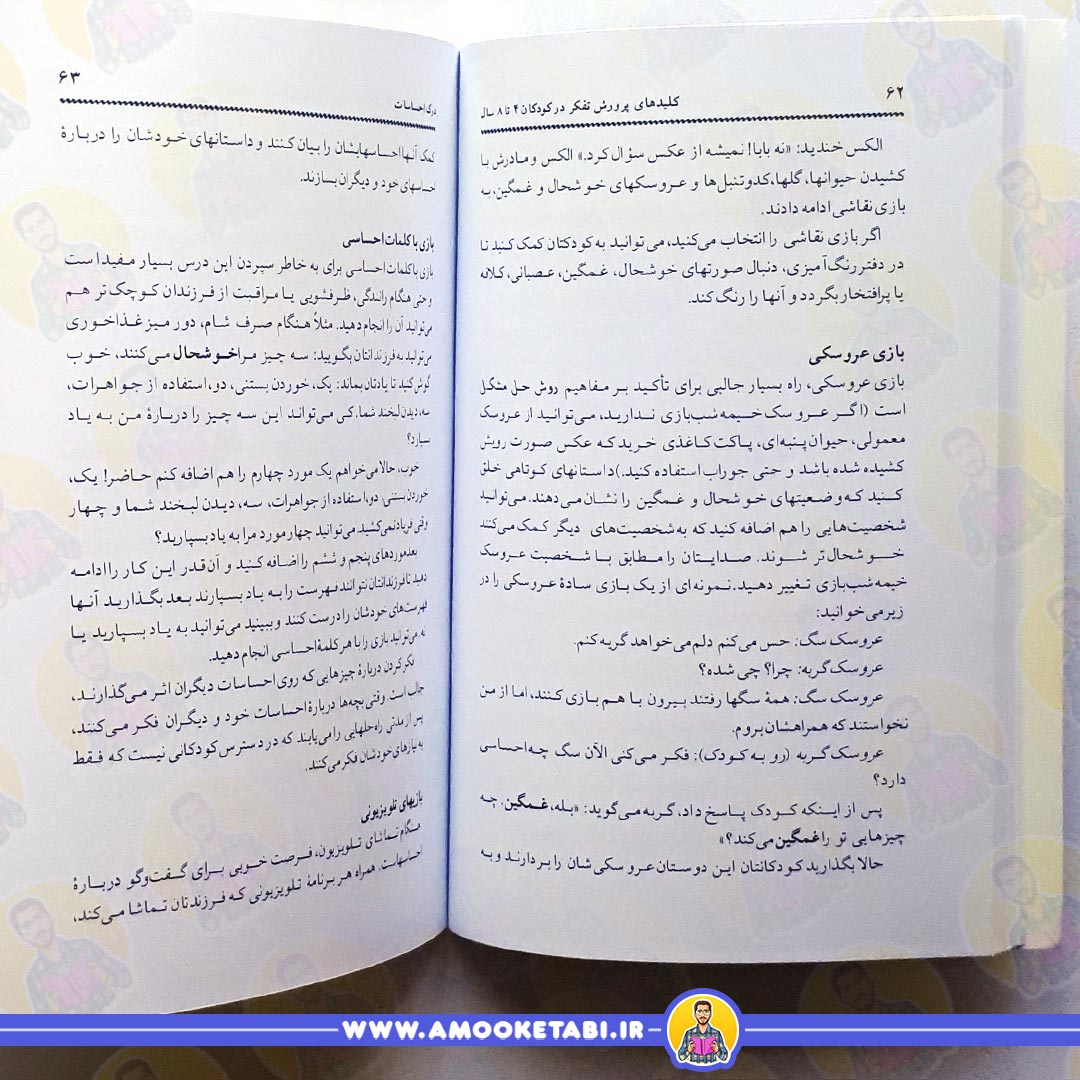 ۶۲
کلیدهای پرورش تفکر در کودکان ۴ تا ۸ سال
الکس خندید: «نه بابا! نمیشه از عکس سؤال کرد.» الکس و مادرش با
کشیدن حیوانها، گلها، کدوتنبل‌ها و عروسکهای خوشحال و غمگین، به
بازی نقاشی ادامه دادند.
اگر بازی نقاشی را انتخاب می‌کنید، می‌توانید به کودکتان کمک کنید تا
در دفتر رنگ‌آمیزی، دنبال صورتهای خوشحال، غمگین، عصبانی، کلافه
یا پرافتخار بگردد و آنها را رنگ کند.
بازی عروسکی
بازی عروسکی، راه بسیار جالبی برای تأکید بر مفاهیم روش حل مشکل
است (اگر عروسک خیمه شب‌بازی ندارید، می‌توانید از عروسک
معمولی، حیوان پنبه‌ای، پاکت کاغذی خرید که عکس صورت رویش
کشیده شده باشد و حتی جوراب استفاده کنید.) داستانهای کوتاهی خلق
کنید که وضعیتهای خوشحال و غمگین را نشان می‌دهند. می‌توانید
شخصیت‌هایی را هم اضافه کنید که به شخصیت‌های دیگر کمک می‌کنند
خوشحال‌تر شوند. صدایتان را مطابق با شخصیت عروسک
خیمه شب‌بازی تغییر دهید. نمونه‌ای از یک بازی سادهٔ عروسکی را در
زیر می‌خوانید:
عروسک سگ: حس می‌کنم دلم می‌خواهد گریه کنم.
عروسک گربه: چرا؟ چی شده؟
عروسک سگ: همهٔ سگها رفتند بیرون با هم بازی کنند، اما از من
نخواستند که همراهشان بروم.
عروسک گربه (رو به کودک): فکر می‌کنی الآن سگ چه احساسی
دارد؟
پس از اینکه کودک پاسخ داد، گربه می‌گوید: «بله، غمگین. چه
چیزهایی تو را غمگین می‌کند؟»
حالا بگذارید کودکانتان این دوستان عروسکی‌شان را بردارند و به
۶۳
درک احساسات
کمک آنها احساسهایشان را بیان کنند و داستانهای خودشان را دربارهٔ
احساسهای خود و دیگران بسازند.
بازی با کلمات احساسی
بازی با کلمات احساسی برای به خاطر سپردن این درس بسیار مفید است
و حتی هنگام رانندگی، ظرفشویی یا مراقبت از فرزندان کوچک‌تر هم
می‌توانید آن را انجام دهید. مثلاً هنگام صرف شام، دور میز غذاخوری
می‌توانید به فرزندانتان بگویید: سه چیز مرا خوشحال می‌کنند، خوب
گوش کنید تا یادتان بماند: یک، خوردن بستنی، دو، استفاده از جواهرات،
سه، دیدن لبخند شما. کی می‌تواند این سه چیز را دربارهٔ من به یاد
بسپارد؟
خوب، حالا می‌خواهم یک مورد چهارم را هم اضافه کنم حاضر! یک،
خوردن بستنی، دو، استفاده از جواهرات، سه، دیدن لبخند شما و چهار
وقتی فریاد نمی‌کشید. می‌توانید چهار مورد مرا به یاد بسپارید؟
بعد موردهای پنجم و ششم را اضافه کنید و آن‌قدر این کار را ادامه
دهید تا فرزندانتان نتوانند فهرست را به یاد بسپارند بعد بگذارید آنها
فهرست‌های خودشان را درست کنند و ببینید می‌توانید به یاد بسپارید یا
نه. می‌توانید بازی را با هر کلمهٔ احساسی انجام دهید.
فکر کردن دربارهٔ چیزهایی که روی احساسات دیگران اثر می‌گذارند،
جالب است. وقتی بچه‌ها دربارهٔ احساسات خود و دیگران فکر می‌کنند،
پس از مدتی راه‌حلهایی را می‌یابند که در دسترس کودکانی نیست که فقط
به نیازهای خودشان فکر می‌کنند.
بازیهای تلویزیونی
هنگام تماشای تلویزیون، فرصت خوبی برای گفت‌وگو دربارهٔ
احساسهاست. همراه هر برنامهٔ تلویزیونی که فرزندتان تماشا می‌کند،
WWW.AMOOKETABI.IR